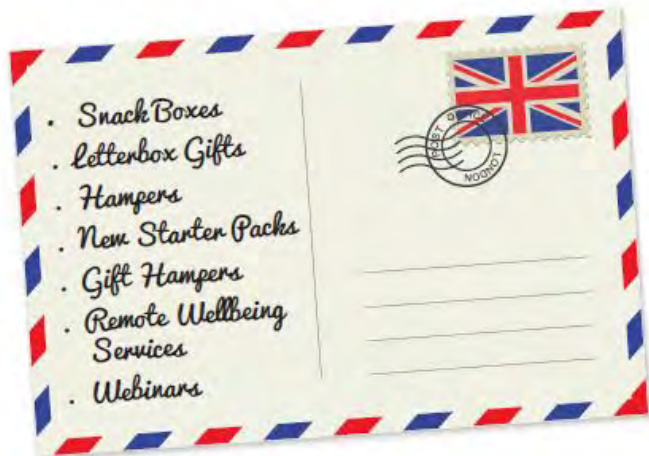 . Snack Boxes
. Letterbox Gifts
. Hampers
. New Starter Packs
. Gift Hampers
. Remote Wellbeing
Services
. Webinars
POST OFFICE
LONDON